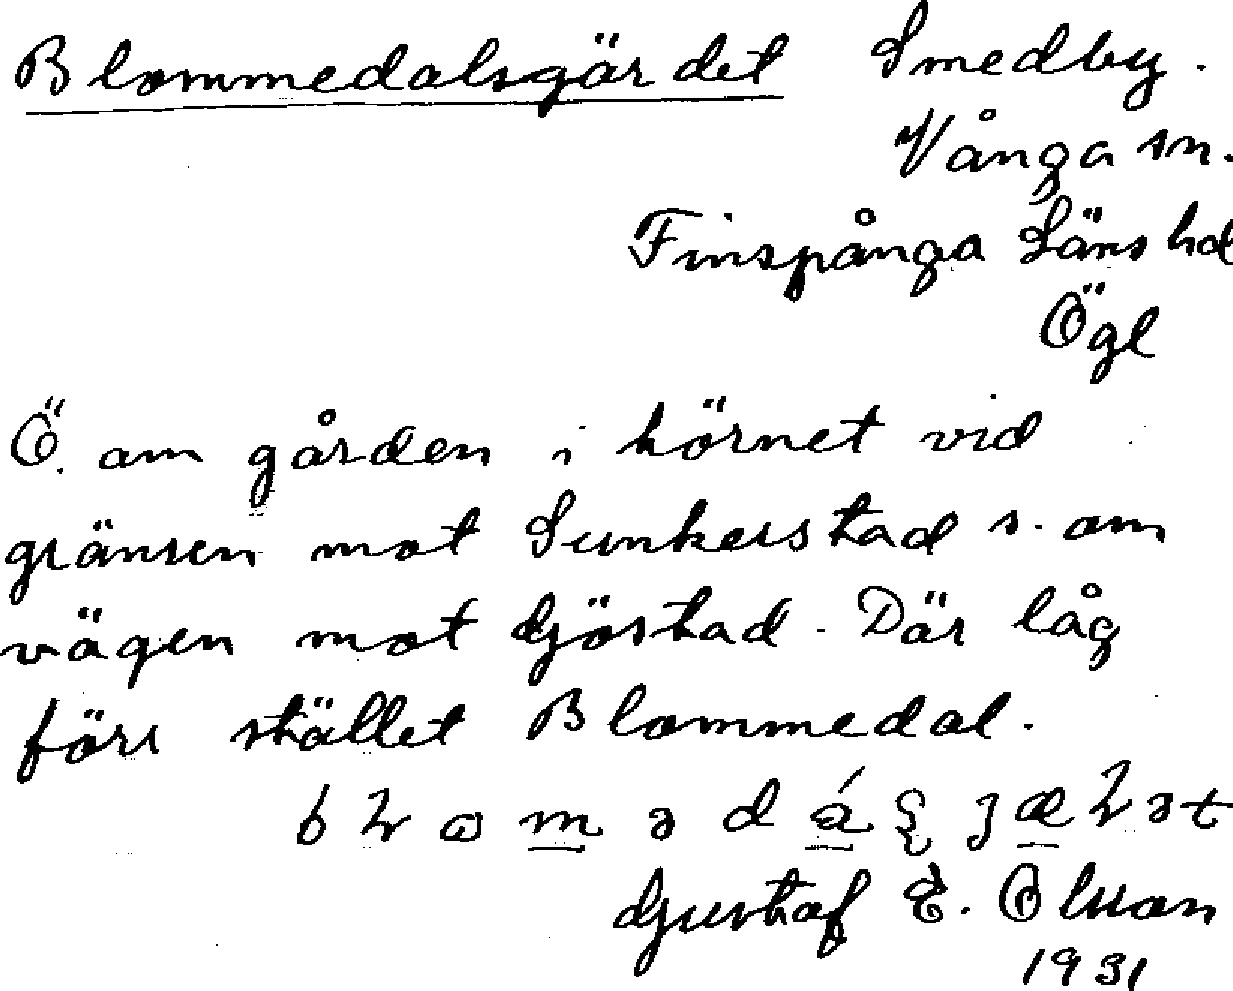 Blommedalsgärdet Smedby.
Vånga sn.
Finspånga Läns hd
Ögl
Ö. om gården i hörnet vid
gränsen mot Sunkerstad s. om
vägen mot Gjöstad. Där låg
förr stället Blommedal.
Gustaf E. Olsson
1931